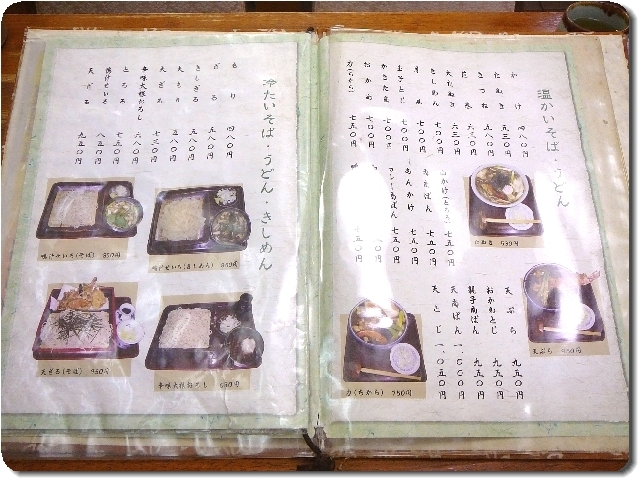 温かいそば・うどん
かけ 四八〇円
きつね 五三〇円
たぬき 五八〇円
花巻 六三〇円
きしめん 六三〇円
月見
玉子とじ 七〇〇円
かきたま 七〇〇円
おかめ 七〇〇円
力(ちから) 七五〇円
七五〇円
南ばん 七五〇円
あんかけ 七五〇円
カレー南ばん 七五〇円
天ぷら 九五〇円
おかめとじ 九五〇円
親子南ばん 九五〇円
天南ばん 一、〇〇〇円
天とじ 一、〇五〇円
530円
天ぷら 950円
力(ちから) 750円
冷たいそば・うどん・きしめん
もり 四八〇円
ざる 五五〇円
きしざる 五八〇円
大もり 五八〇円
大ざる 七三〇円
辛味大根おろし 六八〇円
とろろ 七五〇円
鴨汁せいろ 八五〇円
天ざる 九五〇円
鴨汁せいろ(そば) 850円
鴨汁せいろ(きしめん) 850円
天ざる(そば) 950円
辛味大根おろし 680円